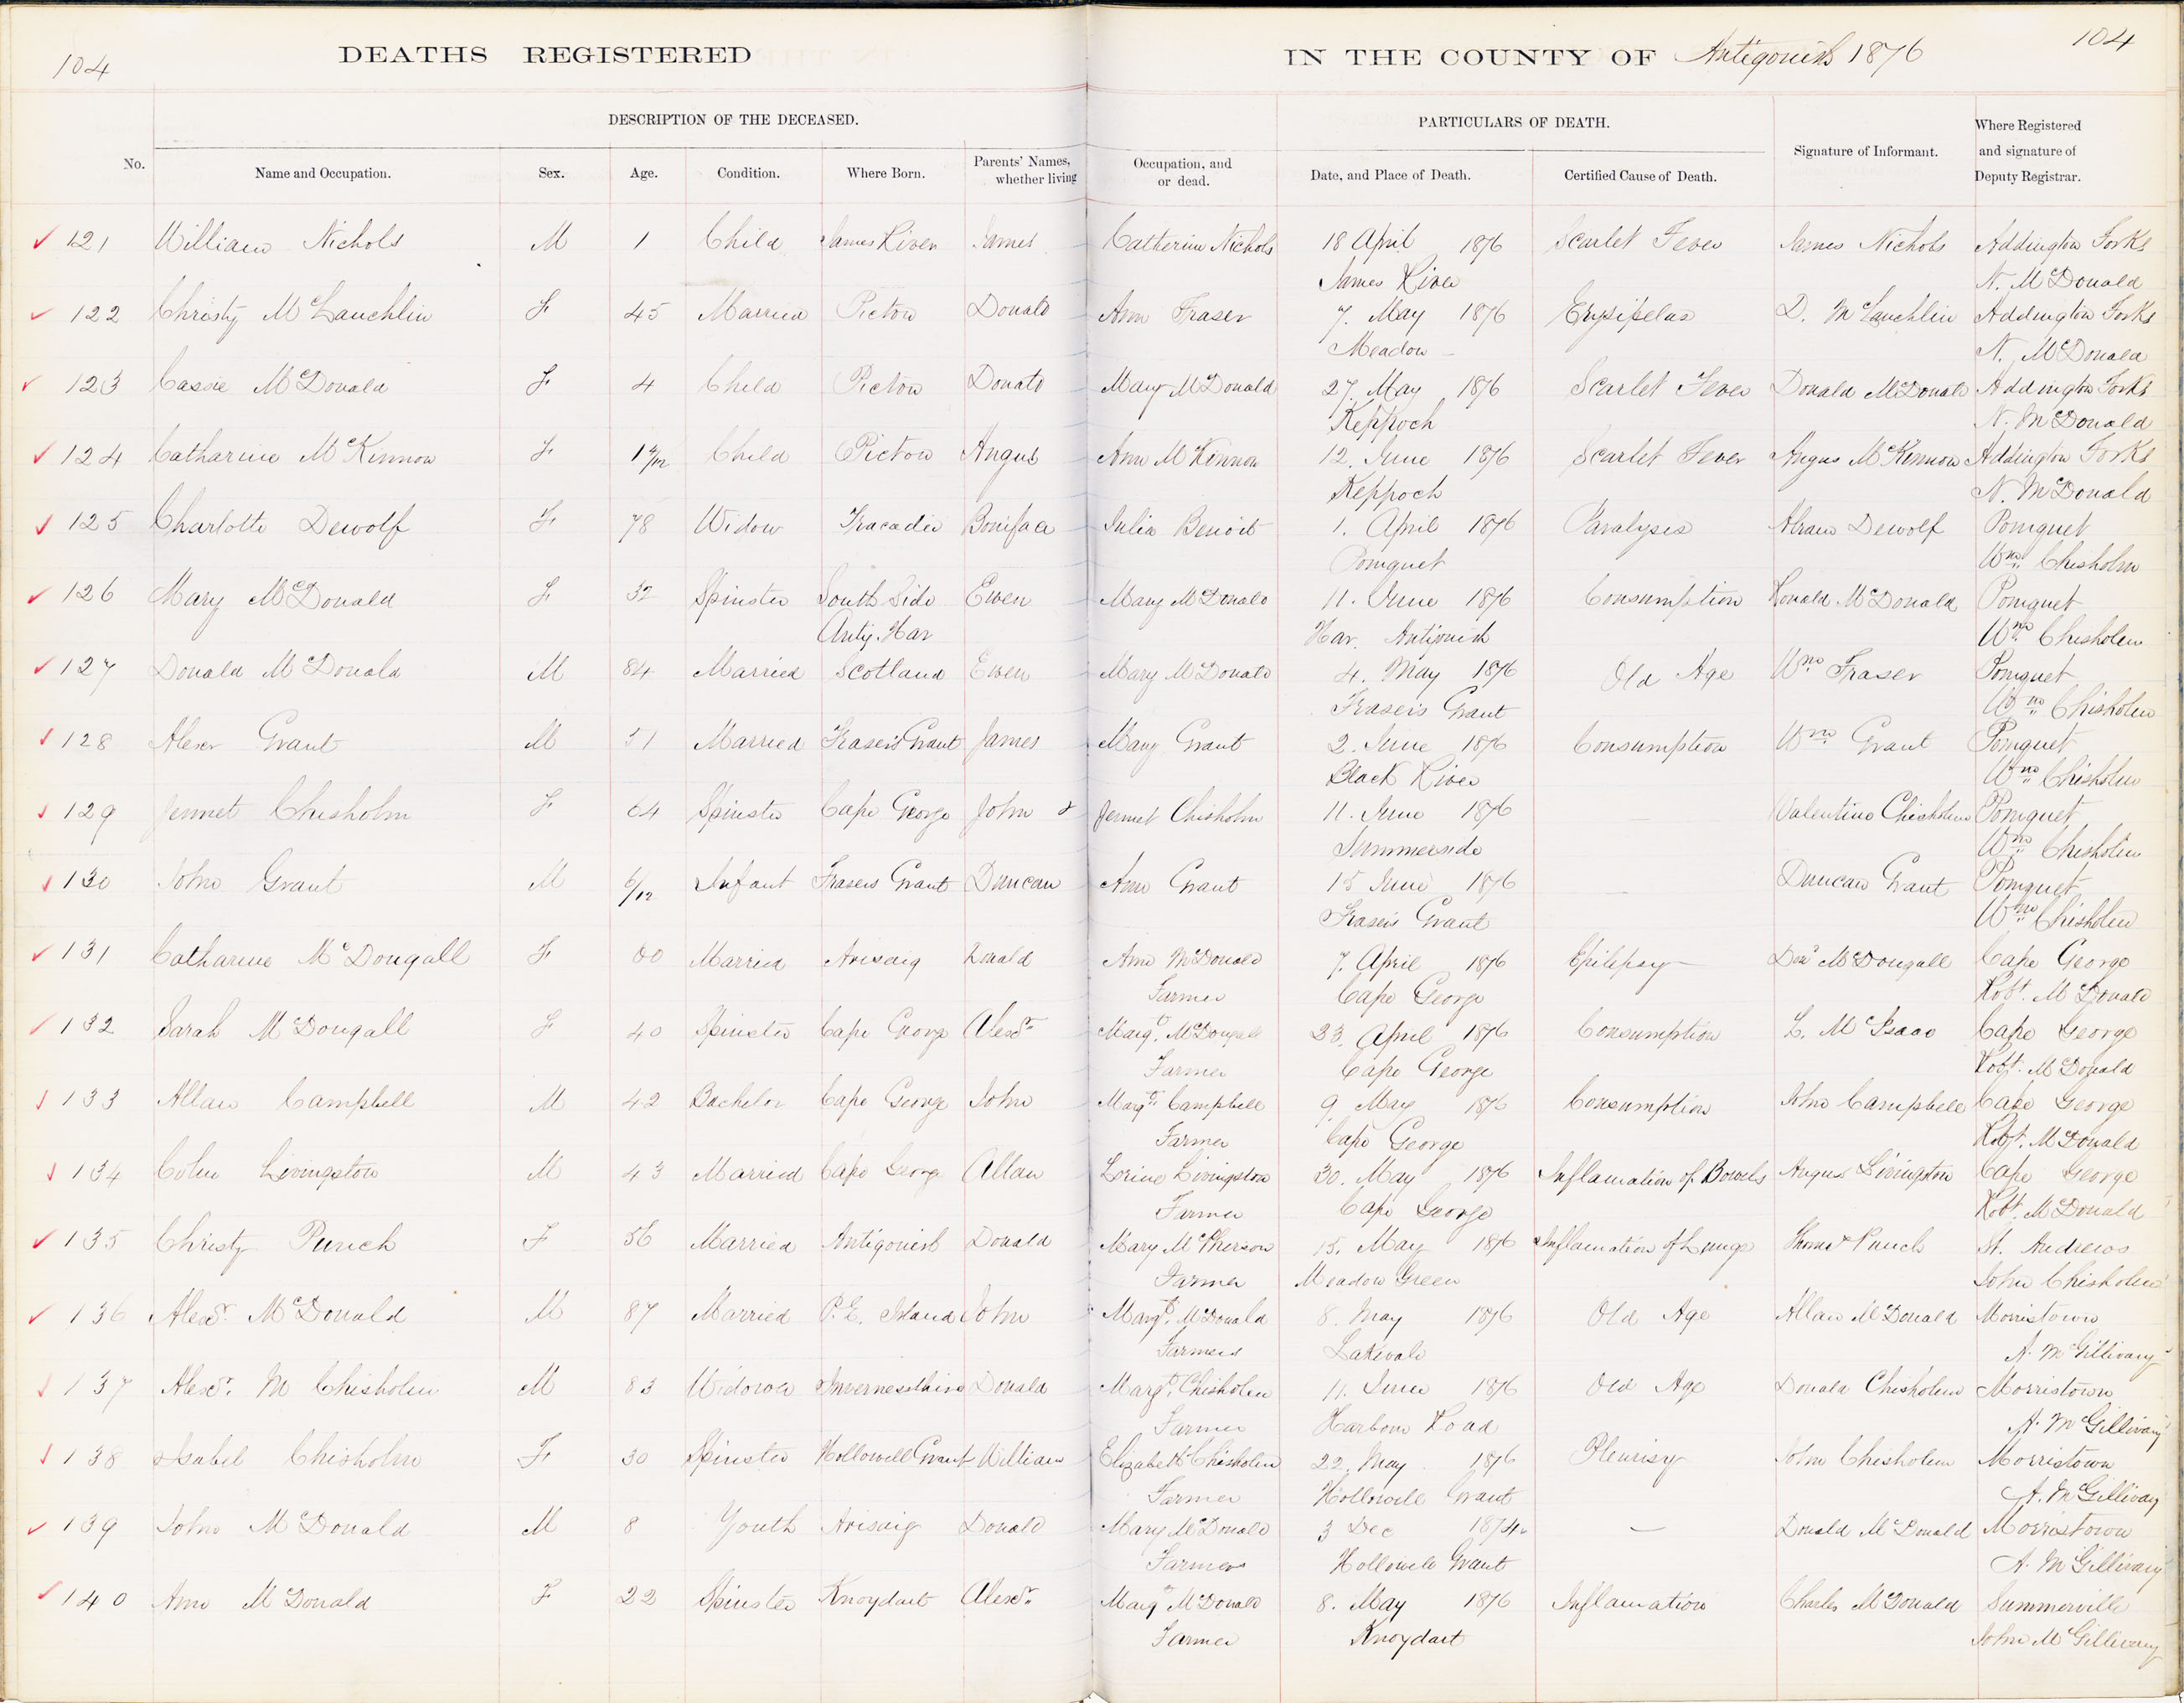 104
DEATHS REGISTERED
IN THE COUNTY OF Antigonish 1876
104
DESCRIPTION OF THE DECEASED.
PARTICULARS OF DEATH.
No.
Name and Occupation.
Sex.
Age.
Condition.
Where Born.
Parents' Names, whether living
Occupation, and or dead.
Date, and Place of Death.
Certified Cause of Death.
Signature of Informant.
Where Registered and signature of Deputy Registrar.
121 William Nichols M 1 Child James River James Catherine Nichols 18 April 1876 Scarlet Fever James Nichols Addington Forks
James River N. McDonald
122 Christy McLauchlin F 45 Married Pictou Donald Ann Fraser 7. May 1876 Erysipelas D. McLauchlin Addington Forks
Meadow N. McDonald
123 Cassie McDonald F 4 Child Pictou Donald Mary McDonald 27. May 1876 Scarlet Fever Donald McDonald Addington Forks
Keppoch N. McDonald
124 Catharine McKinnon F Child Pictou Angus Ann McKinnon 12. June 1876 Scarlet Fever Angus McKinnon Addington Forks
Keppoch N. McDonald
125 Charlotte Dewolf F 78 Widow Tracadie Boniface Julia Benoit 1. April 1876 Paralysis Dewolf Pomquet
Pomquet Wm Chisholm
126 Mary McDonald F 32 Spinster South Side Ewen Mary McDonald 11. June 1876 Consumption Ronald McDonald Pomquet
Antig. Har Har. Antigonish Wm Chisholm
127 Donald McDonald M 84 Married Scotland Ewen Mary McDonald 4. May 1876 Old Age Wm Fraser Pomquet
Frasers Grant Wm Chisholm
128 Alexr Grant M 51 Married Frasers Grant James Mary Grant 2. June 1876 Consumption Wm Grant Pomquet
Black River Wm Chisholm
129 Jennet Chisholm F 64 Spinster Cape George John & Jennet Chisholm 11. June 1876 Valentine Chisholm Pomquet
Summerside Wm Chisholm
130 John Grant M 6/12 Infant Frasers Grant Duncan Ann Grant 15 June 1876 — Duncan Grant Pomquet
Frasers Grant Wm Chisholm
131 Catharine McDougall F Married Arisaig Ronald Ann McDonald 7. April 1876 Epilepsy McDougall Cape George
Farmer Cape George Robt. McDonald
132 Sarah McDougall F 40 Spinster Cape George Alexdr Margt. McDougall 23. April 1876 Consumption L. McIsaac Cape George
Farmer Cape George Robt. McDonald
133 Allan Campbell M 42 Bachelor Cape George John Margt. Campbell 9. May 1876 Consumption John Campbell Cape George
Farmer Cape George Robt. McDonald
134 Colin Livingston M 43 Married Cape George Allan Livingston 30. May 1876 Inflamation of Bowels Angus Livingston Cape George
Farmer Cape George Robt. McDonald
135 Christy Punch F 56 Married Antigonish Donald Mary McPherson 15. May 1876 Inflamation of Lungs Thomas Punch St. Andrews
Farmer Meadow Green John Chisholm
136 Alexdr. McDonald M 87 Married P. E. Island John Margt. McDonald 8. May 1876 Old Age Allan McDonald Morristown
Farmers Lakevale A. McGillivary
137 Alexdr. M Chisholm M 83 Widower Invernesshire Donald Margt. Chisholm 11. June 1876 Old Age Donald Chisholm Morristown
Farmer Harbour Road A. McGillivary
138 Isabel Chisholm F 30 Spinster Hollowell Grant William Elizabeth Chisholm 22. May 1876 Pleurisy John Chisholm Morristown
Farmer Hollowell Grant A. McGillivary
139 John McDonald M 8 Youth Arisaig Donald Mary McDonald 3 Dec 1874 — Donald McDonald Morristown
Farmers Hollowell Grant A. McGillivary
140 Ann McDonald F 22 Spinster Knoydart Alexdr. Margt McDonald 8. May 1876 Inflamation Charles McDonald Summerville
Farmer Knoydart John McGillivary